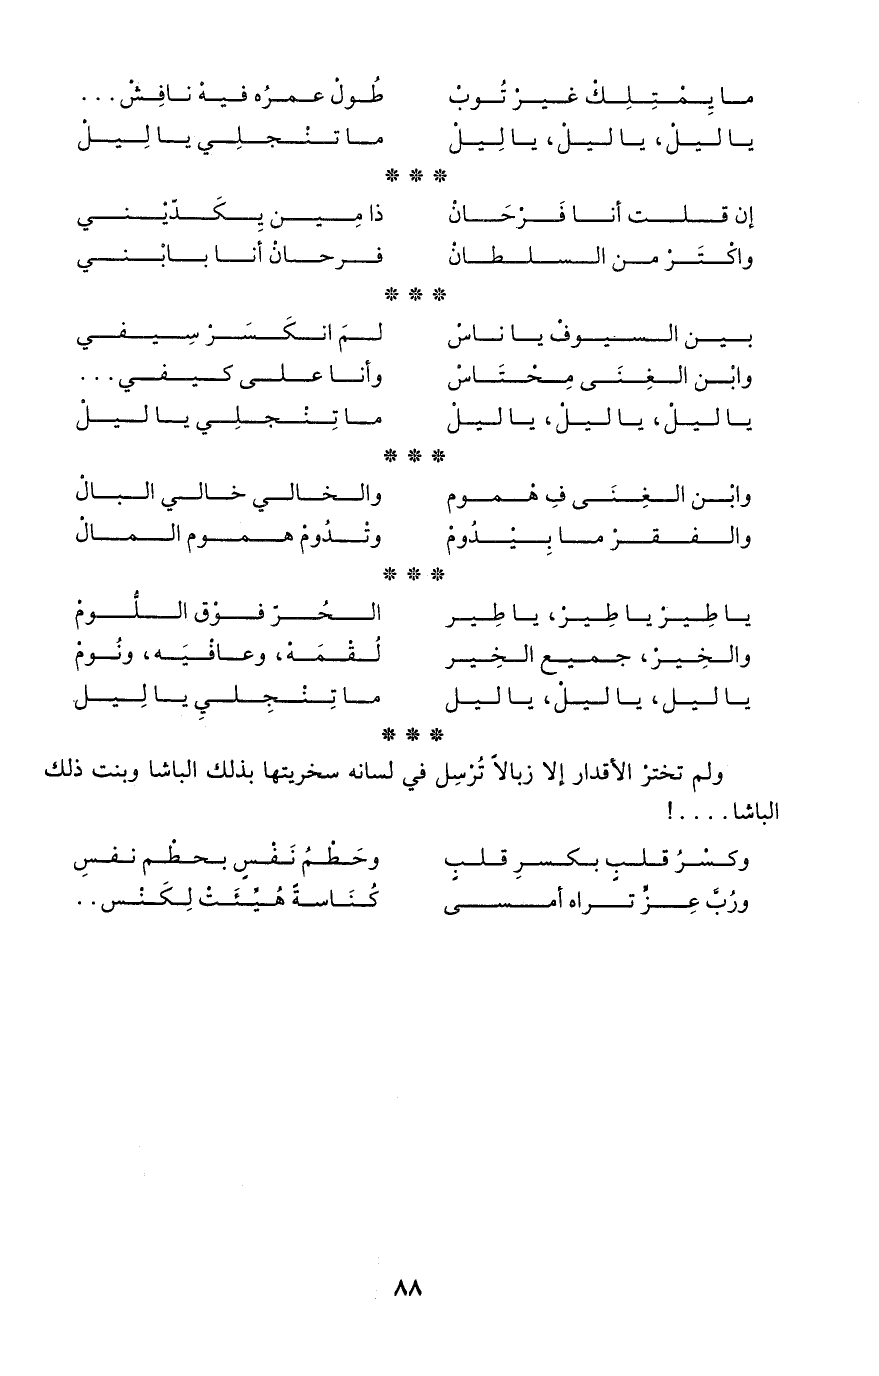 ما يِمْتِلِكْ غيرْ تُوبْ    طُولْ عمرُه فيهْ نافِشْ...
يا ليلْ، يا ليلْ، يا لِيلْ    ما تنْجلِي يا لِيلْ
***
إن قلت أنا فَرْحَانْ    ذا مِين يِكَدّبْني
واكْتَرْ من السلطانْ    فرحانْ أنا بابْني
***
بين السيوفْ يا ناسْ    لمَ انكَسَرْ سِيفي
وابْن الغِنَى مِحْتَاسْ    وأنا على كيفي...
يا ليلْ، يا ليلْ، يا ليلْ    ما تِنْجلِي يا ليلْ
***
وابْن الغِنَى فِ هْموم    والخالي خالي البالْ
والفقرْ ما بِيْدُومْ    وتْدُومْ هموم المالْ
***
يا طِيرْ يا طِيرْ، يا طِير    الحُرّ فوْق اللُّومْ
والخِيرْ، جميع الخِير    لُقْمَهْ، وعافْيَه، ونُومْ
يا ليل، يا ليلْ، يا ليل    ما تِنْجِلي يا لِيل
***
ولم تخترْ الأقدار إلا زبالاً تُرْسِل في لسانه سخريتها بذلك الباشا وبنت ذلك
الباشا....!
وكسْرُ قلبٍ بكسرِ قلبٍ    وحَطْمُ نَفْسٍ بحطْم نفسِ
ورُبَّ عِزٍّ تراه أمسى    كُنَاسةً هُيِّئَتْ لِكَنْس..
٨٨